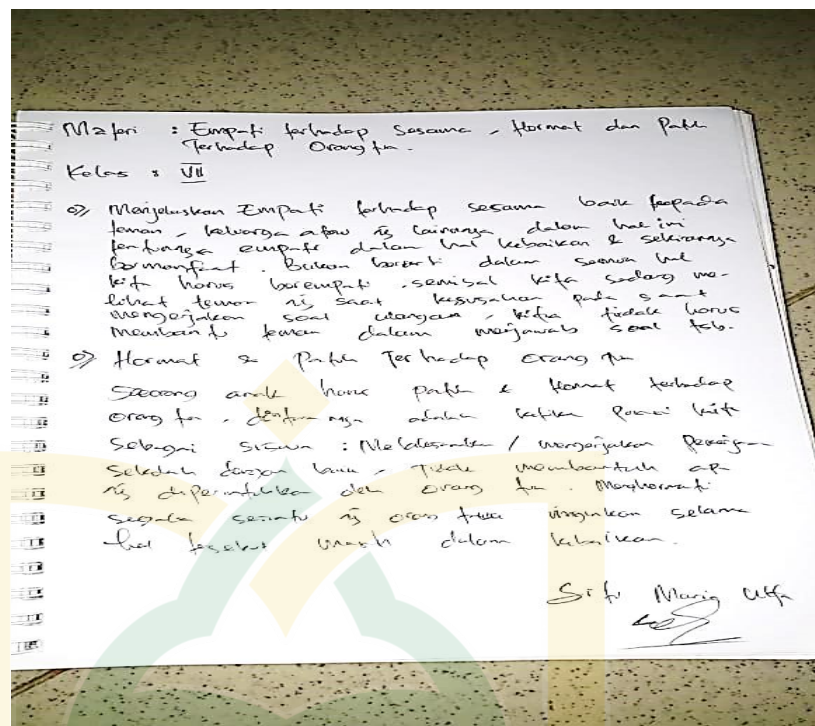 Materi : Empati terhadap Sesama, Hormat dan Patuh
Terhadap Orang tua.
Kelas : VII
Menjelaskan Empati terhadap sesama baik kepada
teman, keluarga atau yg lainnya dalam hal ini
tentunya empati dalam hal kebaikan & sekiranya
bermanfaat. Bukan berarti dalam semua hal
kita harus berempati, semisal kita sedang me-
lihat teman yg saat kesusahan pada saat
mengerjakan soal ulangan, kita tidak harus
membantu teman dalam menjawab soal tsb.
Hormat & Patuh Terhadap Orang tua
Seorang anak harus patuh & hormat terhadap
orang tua, adalah ketika posisi kita
Sebagai siswa : Melaksanakan / mengerjakan
Sekolah dengan baik, Tidak membantah apa
yg diperintahkan oleh orang tua. Menghormati
segala sesuatu yg orang tua inginkan selama
hal tersebut masih dalam kebaikan.
Siti Maria Ulfa